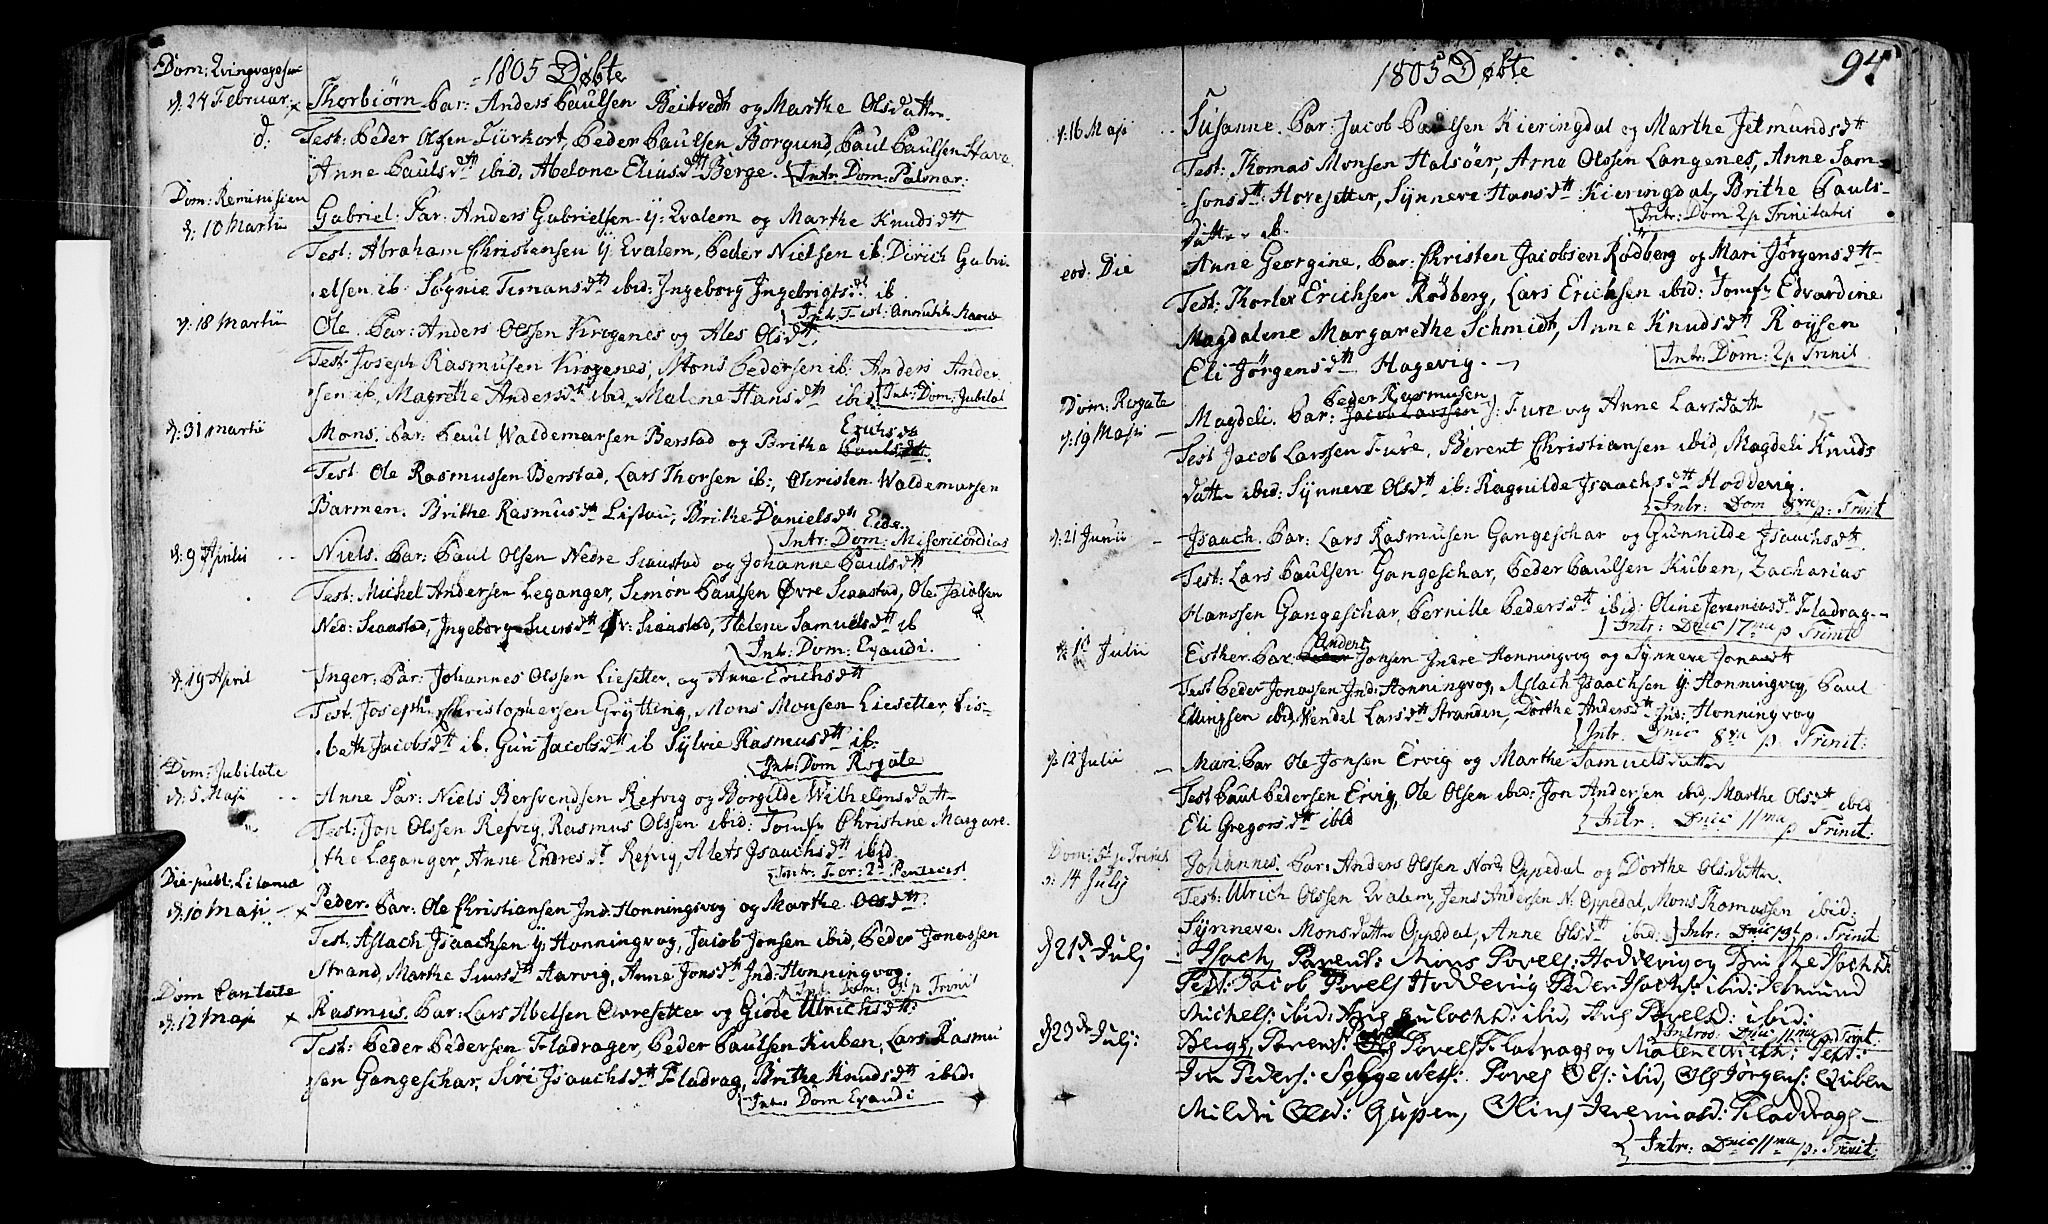 Dom: Qvinqvagesim
d: 24 Februar
1805 Døbte
Thorbiørn Par: Anders Paulsen Beitvedt og Marthe Olsdatter
Test: Peder Olsen Peder Paulsen Borgund, Paul Paulsen Have
Anne Paulsdtt ibid, Abelone Eliasdtt Berge. Intr: Dom: Palmar:
Dom: Reminiscere
d: 10 Martii
Gabriel: Par: Anders Gabrielsen Y: Qvalem og Marthe Knudsdtt
Test: Abraham Christensen Y: Qvalem, Peder Nielsen ib: Dirich Gabri-
elsen ib: Søgnie Timansdtt ibid: Ingeborg Ingebrigtsdt ib
Intr: Fest: Annuntit: Mariæ
d: 18 Martii
Ole Par: Anders Olssen Krogenes og Ales Olsdtt
Test: Joseph Rasmusen Krogenes, Mons Pedersen ib: Anders Ander
sen ib, Magrethe Andersdtt ibid, Malene Hansdtt ibid Intr: Dom: Jubilat
d: 31 Martii
Mons. Par: Paul Waldemarsen Berstad og Brithe Erichsdt
Test Ole Rasmussen Berstad, Lars Thorsen ib:, Christen Waldemarsen
Barmen. Brithe Rasmusdtt Listau, Brithe Danielsdtt Eide.
Intr: Dom: Misericordias
d: 9 Aprilis
Niels. Par: Paul Olsen Nedre Siaastad og Johanne Paulsdtt
Test: Michel Andersen Leganger, Simon Paulsen Øvre Siaastad, Ole Jacobsen
Ned: Siaastad, Ingeborg Siursdtt Siaastad, Helene Samuelsdtt ib
Intr: Dom: Exaudi.
d: 19 April
Inger: Par: Johannes Olssen Liesetter, og Anne Erichsdtt
Test. Joseph Christophersen Grytting, Mons Monsen Liesetter, Lis-
beth Jacobsdtt ib. Guri Jacobsdtt ib Sylvie Rasmusdtt ib:
Intr: Dom Rogate
Dom: Jubilate
d: 5 Maji
Anne Par: Niels Bersvendsen Refvig og Borgilde Wilhelmsdatt-
Test: Jon Olssen Refvig, Rasmus Olssen ibid: Jomfr Christine Margare-
the Leganger, Anne Endresdt Refvig, Alets Isaachsdtt ibid.
Intr: Fer: 2d Pentecost
Die publ: Litaniæ
d: 10 Maji
Peder. Par: Ole Christiansen Ind: Honningsvog og Marthe Olsdtt
Test: Aslach Isaachsen Y: Honningvog, Jacob Jonsen ibid, Peder Jonassen
Strand, Marthe Siursdtt Aarvig, Anne Jonsdtt Ind: Honningvog.
Intr. Dom: p Trinit
Dom Cantate
d: 12 Maji
Rasmus. Par: Lars Abelsen Ervesetter og Giøde Ulrichsdtt:
Test: Peder Pedersen Fladrager, Peder Paulsen Kuben, Lars Rasmu
sen Gangeschar, Siri Isaachsdtt Fladrag, Brithe Knudsdtt ibid.
Intr Dom Exaudi
1805 Døbte
94
d: 16 Maji
Susanne. Par: Jacob Paulsen Kieringdal og Marthe Jetmundsdtt
Test: Thomas Monsen Halsøer, Arne Olssen Langenes, Anne Sam-
sonsdtt: Hovesetter, Synneve Hansdtt Kieringdal, Brithe Pauls-
datter ib.
Intr: Dom 2 p Trinitatis
eod: Die
Anne Georgine, Par: Christen Jacobsen Rødberg og Mari Jørgensdtt-
Test: Thorlex Erichsen Rødberg, Lars Erichsen ibid: Jomfr Edvardine
Magdalene Margarethe Schmidt, Anne Knudsdtt Røysen
Eli Jørgensdtt Hagevig.
Intr: Dom: 2 p Trinit
Dom: Rogate
d: 19 Maji
Magdeli. Par: Jacob Larssen Peder Rasmusen J: Fure og Anne Larsdatt
Test Jacob Larssen Fure, Berent Christiansen ibid, Magdeli Knuds
datter ibid: Synneve Olsdtt ib: Ragnilde Isaachsdtt Hoddevig.
Intr: Dom 8va p: Trinit
d: 21 Junii
Isaach. Par: Lars Rasmusen Gangeschar og Gunnilde Isaachsdtt.
Test: Lars Paulsen Gangeschar, Peder Paulsen Kuben, Zacharias
Hanssen Gangeschar, Pernille Pedersdtt ibid: Oline Jeremiasdtt Fladrag-
Intr: Dnic 17ma p Trinit
Julii
Esther. Par: Anders Jonsen Indre Honningvog og Synneve Jonasdtt
Test Peder Jonassen Ind: Honningvog, Aslach Isaachsen Y: Honningvog, Paul
Ellingsen ibid, Vendel Larsdtt Stranden, Dorthe Andersdtt Ind: Honningvog
Intr. Dnic 8va p. Trinit:
d 12 Julii
Mari. Par Ole Jonsen Ervig og Marthe Samuelsdatter
Test Paul Pedersen Ervig, Ole Olsen ibid: Jon Andersen ibid, Marthe Olsdtt ibid
Eli Gregorsdtt ibid
Intr: Dnic 11ma p Trinit:
Dom: 5t p Trinit
d: 14 Julij
Johannes. Par: Anders Olssen Nord Oppedal og Dorthe Olsdatter
Test: Ulrich Olssen Qvalem, Jens Andersen N. Oppedal, Mons Romussen ibid:
Synneve. Monsdatter Oppedal, Anne Olsdtt ibid: Intr: Dnic p. Trinit
d 21de Julij
Isach, Parent: Mons Povels: Hoddevig og Brithe Isachsd:
Test: Jacob Povels Hoddevig Peder Isachs: ibid: Jetmund
Michels: ibid: ibid, Povelsd: ibid:
Introd: Dnic 11ma p Trinit.
d 23de Julj:
Parent: Povels Fladrag og Malene Test:
Jon Peders: Povel Ols: ibid, Ole Jørgens: Qüben
Mildri Olsd: Oline Jeremiasd: Fladdrag-
Intr: Dnic 11ma p. Trinit: